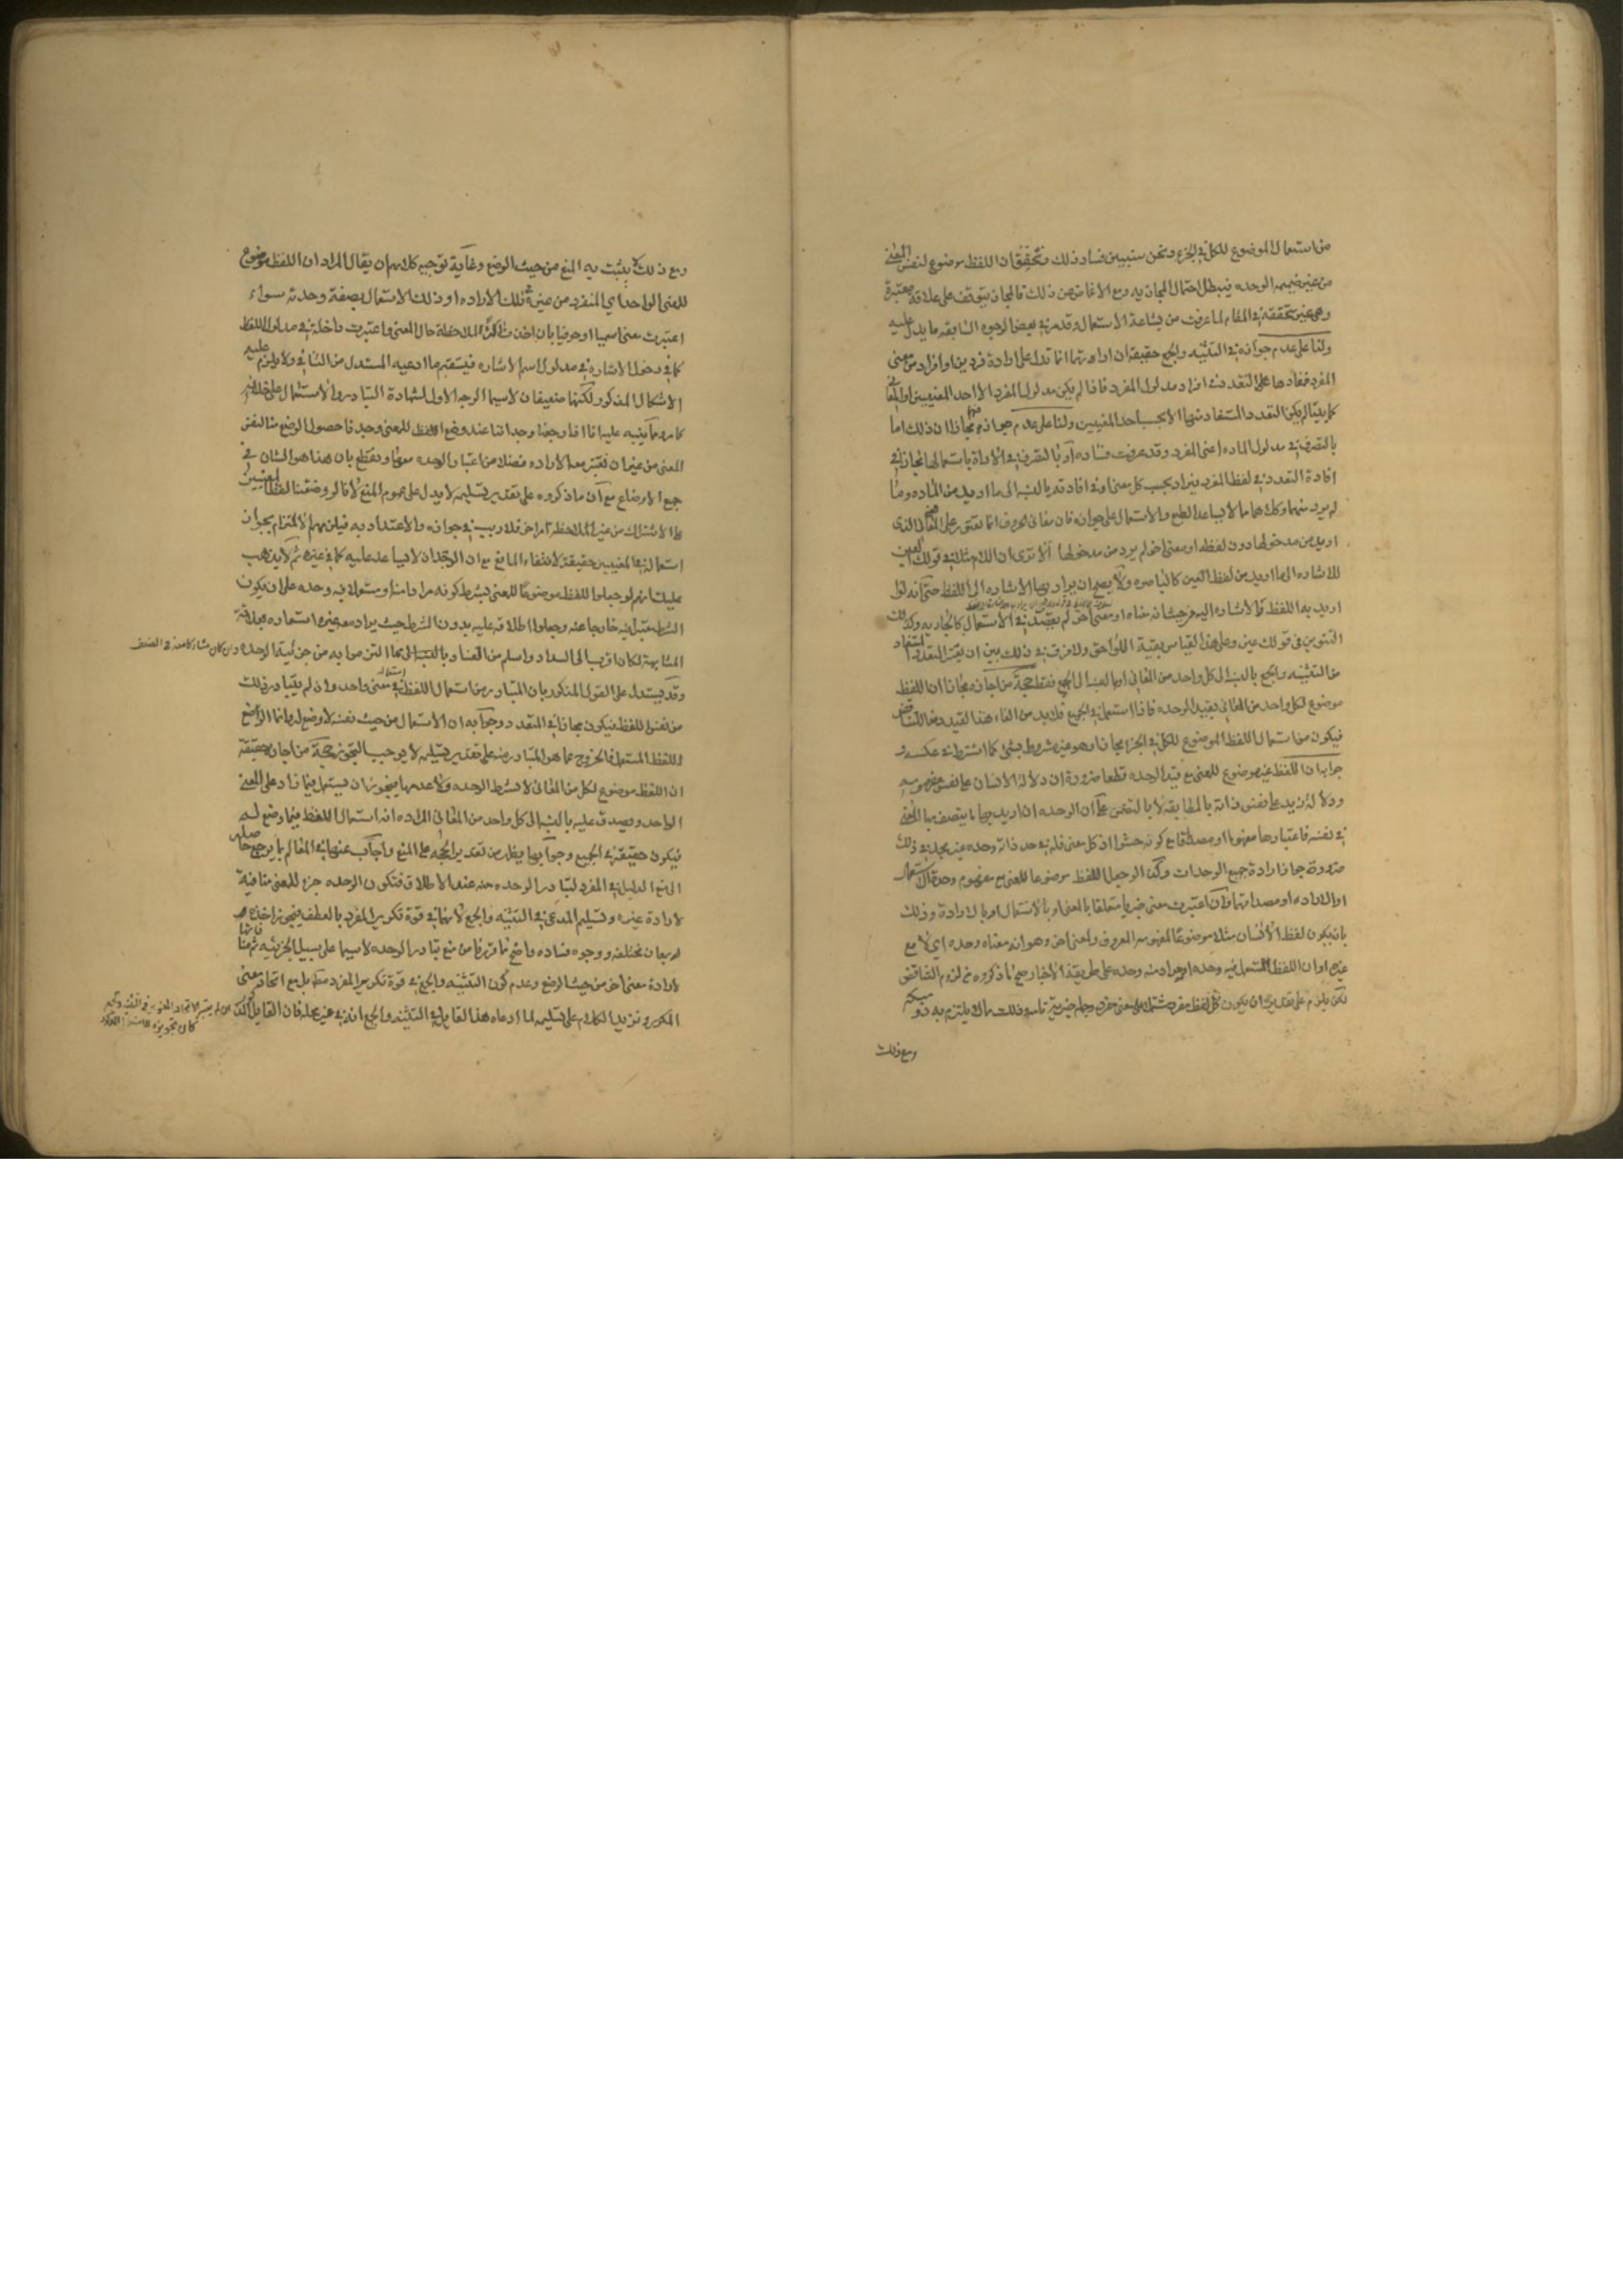 من استعمال الموضوع للكل في الجزء ونحن سنبين فساد ذلك ونحقق ان اللفظ موضوع لنفس المعنى
من غير ضميمة الوحده فيبطل احتمال المجاز به ومع الاغماض عن ذلك فالمجاز يتوقف على علاقة معتبرة
وهي غير متحققة في المقام لما عرفت من بشاعة الاستعمال وقد مر في بعض الوجوه السابقه ما يدل عليه
ولنا على عدم جوازه في التثنيه والجمع حقيقة ان اداوتهما انما تدل على ارادة فردين او افراد من معنى
المفرد فمفادها على التعدد في افراد مدلول المفرد فاذا لم يكن مدلول المفرد الا احد المعنيين او المعاني
كما بينا لم يكن التعدد المستفاد منها الا بحسب احد المعنيين ولنا على عدم جوازه فيهما مجازا ان ذلك اما
بالتصرف في مدلول الماده اعنى المفرد وقد عرفت فساده او بالتصرف في الاداة باستعمالها مجازا في
افادة التعدد في لفظ المفرد فيراد بحسب كل معنى او في افادته بالنسبة الى ما اريد من الماده وما
لم يرد منها وكلاهما مما لا يساعد الطبع والاستعمال على جوازه فان معاني الحروف انما تعتبر على المعنى الذى
اريد من مدخولها دون لفظه او معنى اخر لم يرد من مدخولها الا ترى ان اللام مثلا في قولك العين
للاشاره الى ما اريد من لفظ العين كالباصره ولا يصح ان يراد بها الاشاره الى اللفظ حتى انه لو
اريد به اللفظ فالاشاره اليه من حيث انه معناه او معنى اخر لم يقصد في الاستعمال كالجاريه وكذلك
التنوين في قولك عين وعلى هذا القياس بقية اللواحق ولا فرق في ذلك بين ان يعتبر التعدد المستفاد
من التثنيه والجمع بالنسبة الى كل واحد من المعاني او بالنسبة الى الجميع فقط حجة من اجازه مجازا ان اللفظ
موضوع لكل واحد من المعاني بقيد الوحده فاذا استعمل في الجميع فلا بد من الغاء هذا القيد دفعا للتناقض
فيكون من استعمال اللفظ الموضوع للكل في الجزء مجازا وهو غير مشروط بشئ كما اشترط في عكسه و
جوابه ان اللفظ غير موضوع للمعنى مع قيد الوحده قطعا ضرورة ان دلالة الانسان على نفس مفهومه
ودلالة زيد على نفس ذاته بالمطابقه لا بالتضمن على ان الوحده ان اريد بها ما يتصف بها المعنى
في نفسه فاعتبارها مفهوما او مصداقا مع كونه حشوا اذ كل معنى فله في حد ذاته وحده غير مجد في ذلك
ضرورة جواز ارادة جميع الوحدات وكذا لو جعل اللفظ موضوعا للمعنى مع مفهوم وحدة الاستعمال
او الاراده او مصداقها وان اعتبرت معنى خبريا متعلقا بالمعنى او بالاستعمال او بالارادة وذلك
بان يكون لفظ الانسان مثلا موضوعا للمفهوم المعروف ولمعنى اخر وهو انه معناه وحده اي لا مع
غيره او ان اللفظ المستعمل فيه وحده او مراد منه وحده على طريقة الاخبار صح ما ذكروه من لزوم التناقض
لكن يلزم على تقديره ان يكون كل لفظ مفرد مشتملا على معنى مفرد وجملة خبرية تامه وذلك مما لا يلتزم به ذو مسكه
ومع ذلك
ومع ذلك لا يثبت به المنع من حيث الوضع وغاية توجيه كلامهم ان يقال المراد ان اللفظ موضوع
للمعنى الواحد اي المنفرد من غيره في تلك الاراده او ذلك الاستعمال بصفة وحدته سواء
اعتبرت معنى اسميا او حرفيا بان اخذت آلة لملاحظة حال المعنى واعتبرت داخلة في مدلول اللفظ
كما في دخول الاشاره في مدلول اسم الاشاره فيستقيم ما ادعيه المستدل من التنافي ولا يلزم عليه
الاشكال المذكور لكنها ضعيفان لا سيما الوجه الاول لشهادة التبادر والاستعمال على خلافه
كما مر ومما ينبه عليه انا اذا رجعنا وجداننا عند وضع اللفظ للمعنى وجدنا حصول الوضع منا لنفس
المعنى من غير ان نعتبر معه الاراده فضلا من اعتبار الوحده معها ونقطع بان هذا هو الشان في
جميع الاوضاع مع ان ما ذكروه على تقدير تسليمه لا يدل على عموم المنع لانا لو وضعنا لفظا لمعنيين
على الاشتراك من غير الملاحظة امر اخر فلا ريب في جوازه والاعتداد به فيلزمهم الالتزام بجواز
استعماله في المعنيين حقيقة لانتفاء المانع مع ان الوجدان لا يساعد عليه كما في غيره ثم لا يذهب
عليك انهم لو جعلوا اللفظ موضوعا للمعنى بشرط كونه مرادا منه او مستعملا فيه وحده على ان يكون
الشرط معتبرا فيه خارجا عنه وجعلوا اطلاقه عليه بدون الشرط حيث يراد معه غيره استعاره بعلاقة
المشابهة لكان اقرب الى السداد واسلم من الفساد بالنسبة الى ما التزموا به من جزئية الوحده وان كان مشاركا معه في الضعف
وقد يستدل على القول المذكور بان المتبادر من استعمال اللفظ استعماله في معنى واحد وان لم يتبادر ذلك
من نفس اللفظ فيكون مجازا في المتعدد وجوابه ان الاستعمال من حيث نفسه لا وضع له وانما الوضع
للفظ المستعمل فالخروج عما هو المتبادر منه على تقدير تسليمه لا يوجب التجوز حجة من اجازه حقيقة
ان اللفظ موضوع لكل من المعاني لا بشرط الوحده ولا عدمها فيجوز ان يستعمل فيما زاد على المعنى
الواحد ويصدق عليه بالنسبة الى كل واحد من المعاني المراده انه استعمال اللفظ فيما وضع له
فيكون حقيقة في الجميع وجوابها يظهر من تقدير الحجه على المنع واجاب عنها في المعالم بما يرجع حاصله
الى منع الدليل في المفرد لتبادر الوحده منه عند الاطلاق فتكون الوحده جزء للمعنى منافية
لارادة غيره وتسليم المدعى في التثنيه والجمع لانهما في قوة تكرير المفرد بالعطف فيجوز اخذه
لمعان مختلفه ووجوه فساده واضح مما قررنا من منع تبادر الوحده لا سيما على سبيل الجزئيه ثم منافاتها
لارادة معنى اخر من حيث الوضع وعدم كون التثنيه والجمع في قوة تكرير المفرد مطلقا بل مع اتحاد معنى
المكرر ونزيد الكلام على تسليمه لما ادعاه هذا القايل في التثنيه والجمع انه في غير محله فان القايل